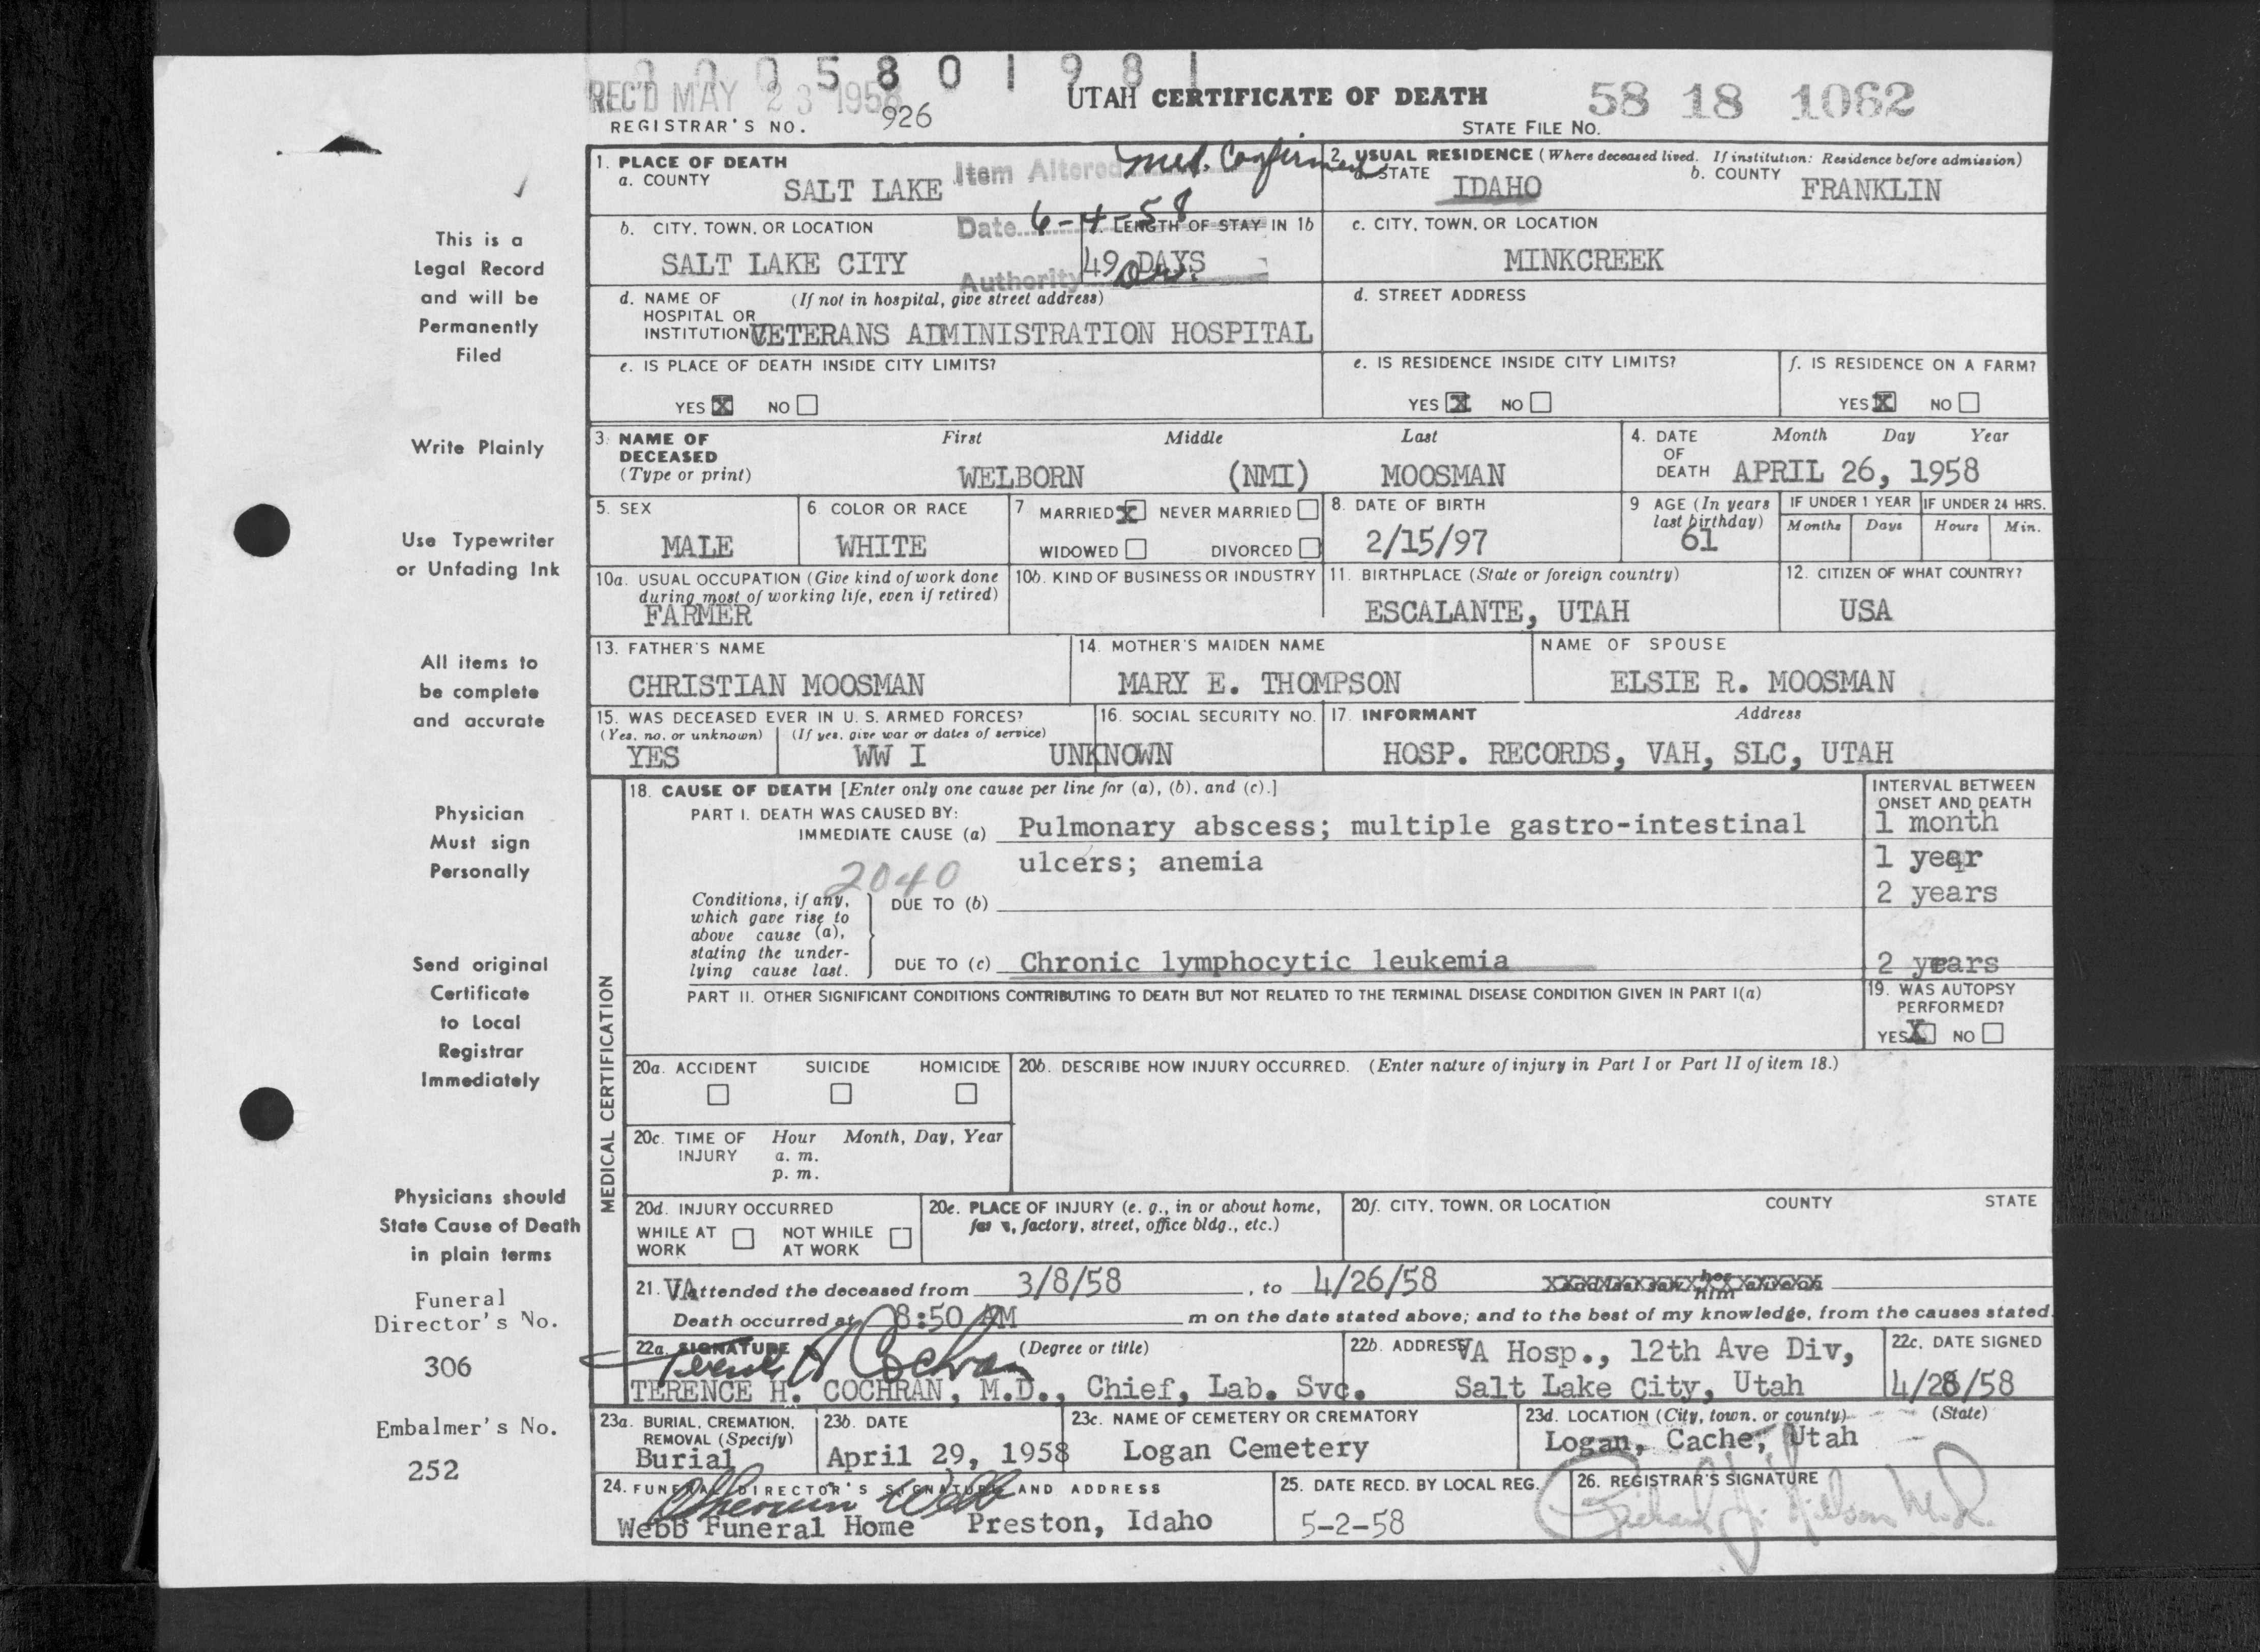 0 0 0 5 8 0 1 9 8 1
REC'D MAY 23 1958
UTAH CERTIFICATE OF DEATH
58 18 1062
REGISTRAR'S NO. 926
STATE FILE NO.
1. PLACE OF DEATH
a. COUNTY SALT LAKE
Item Altered Med. Confirmed
Date 6-4-58
Authority
2. USUAL RESIDENCE (Where deceased lived. If institution: Residence before admission)
a. STATE IDAHO b. COUNTY FRANKLIN
b. CITY, TOWN, OR LOCATION
SALT LAKE CITY
LENGTH OF STAY IN 1b
49 DAYS
c. CITY, TOWN, OR LOCATION
MINKCREEK
d. NAME OF HOSPITAL OR INSTITUTION (If not in hospital, give street address)
VETERANS ADMINISTRATION HOSPITAL
d. STREET ADDRESS
e. IS PLACE OF DEATH INSIDE CITY LIMITS?
YES X NO
e. IS RESIDENCE INSIDE CITY LIMITS?
YES X NO
f. IS RESIDENCE ON A FARM?
YES X NO
3. NAME OF DECEASED (Type or print)
First Middle Last
WELBORN (NMI) MOOSMAN
4. DATE OF DEATH Month Day Year
APRIL 26, 1958
5. SEX
MALE
6. COLOR OR RACE
WHITE
7 MARRIED X NEVER MARRIED
WIDOWED DIVORCED
8. DATE OF BIRTH
2/15/97
9 AGE (In years last birthday)
61
IF UNDER 1 YEAR IF UNDER 24 HRS.
Months Days Hours Min.
10a. USUAL OCCUPATION (Give kind of work done during most of working life, even if retired)
FARMER
10b. KIND OF BUSINESS OR INDUSTRY
11. BIRTHPLACE (State or foreign country)
ESCALANTE, UTAH
12. CITIZEN OF WHAT COUNTRY?
USA
13. FATHER'S NAME
CHRISTIAN MOOSMAN
14. MOTHER'S MAIDEN NAME
MARY E. THOMPSON
NAME OF SPOUSE
ELSIE R. MOOSMAN
15. WAS DECEASED EVER IN U. S. ARMED FORCES?
(Yes, no, or unknown) (If yes, give war or dates of service)
YES WW I
16. SOCIAL SECURITY NO.
UNKNOWN
17. INFORMANT Address
HOSP. RECORDS, VAH, SLC, UTAH
MEDICAL CERTIFICATION
18. CAUSE OF DEATH [Enter only one cause per line for (a), (b), and (c).]
INTERVAL BETWEEN ONSET AND DEATH
PART I. DEATH WAS CAUSED BY:
IMMEDIATE CAUSE (a) Pulmonary abscess; multiple gastro-intestinal 1 month
ulcers; anemia 1 year
2040
Conditions, if any, which gave rise to above cause (a), stating the underlying cause last.
DUE TO (b) 2 years
DUE TO (c) Chronic lymphocytic leukemia 2 years
PART II. OTHER SIGNIFICANT CONDITIONS CONTRIBUTING TO DEATH BUT NOT RELATED TO THE TERMINAL DISEASE CONDITION GIVEN IN PART I(a)
19. WAS AUTOPSY PERFORMED?
YES X NO
20a. ACCIDENT SUICIDE HOMICIDE
20b. DESCRIBE HOW INJURY OCCURRED. (Enter nature of injury in Part I or Part II of item 18.)
20c. TIME OF INJURY Hour Month, Day, Year
a. m.
p. m.
20d. INJURY OCCURRED
WHILE AT WORK NOT WHILE AT WORK
20e. PLACE OF INJURY (e. g., in or about home, factory, street, office bldg., etc.)
20f. CITY, TOWN, OR LOCATION COUNTY STATE
21. VA attended the deceased from 3/8/58, to 4/26/58
Death occurred at 8:50 AM m on the date stated above; and to the best of my knowledge, from the causes stated.
22a. SIGNATURE (Degree or title)
Terence H Cochran
TERENCE H. COCHRAN, M.D., Chief, Lab. Svc.
22b. ADDRESS VA Hosp., 12th Ave Div,
Salt Lake City, Utah
22c. DATE SIGNED
4/28/58
23a. BURIAL, CREMATION, REMOVAL (Specify)
Burial
23b. DATE
April 29, 1958
23c. NAME OF CEMETERY OR CREMATORY
Logan Cemetery
23d. LOCATION (City, town, or county) (State)
Logan, Cache, Utah
24. FUNERAL DIRECTOR'S SIGNATURE AND ADDRESS
Sherwin Webb
Webb Funeral Home Preston, Idaho
25. DATE RECD. BY LOCAL REG.
5-2-58
26. REGISTRAR'S SIGNATURE
This is a
Legal Record
and will be
Permanently
Filed
Write Plainly
Use Typewriter
or Unfading Ink
All items to
be complete
and accurate
Physician
Must sign
Personally
Send original
Certificate
to Local
Registrar
Immediately
Physicians should
State Cause of Death
in plain terms
Funeral
Director's No.
306
Embalmer's No.
252